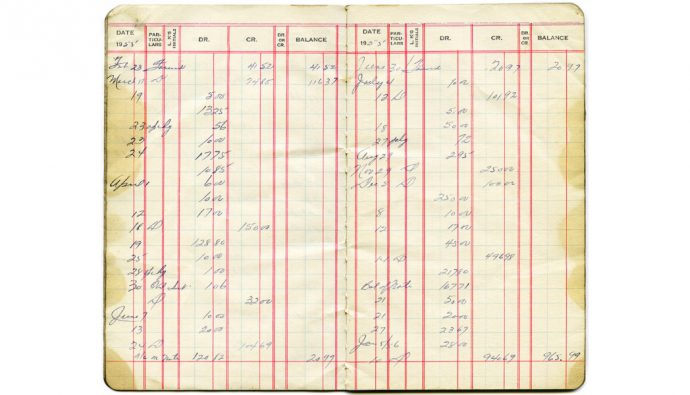 DATE 1955 PAR- TICU- LARS INITIALS DR. CR. DR. OR CR. BALANCE
Feb 23 41 52 41 52
March 11 D 74 85 116 37
19 8 00
13 25
23 56
23 10 00
24 17 75
10 85
April 1 6 00
10 00
12 17 00
18 D 150 00
19 128 80
25 10 00
28 1 00
30 1 06
D 32 00
June 7 10 00
13 20 00
24 D 104 69
120 12 20 97
DATE 1955 PAR- TICU- LARS INITIALS DR. CR. DR. OR CR. BALANCE
June 30 20 97 20 97
July 4 1 00
12 D 101 92
5 00
18 50 00
27 72
Aug 29 2 95
Nov 29 D 250 00
Dec 2 D 100 00
250 00
8 10 00
15 17 00
45 00
D 496 98
217 80
167 71
21 5 00
21 20 00
27 23 67
Jan 5/56 28 00
10 D 946 69 965 99